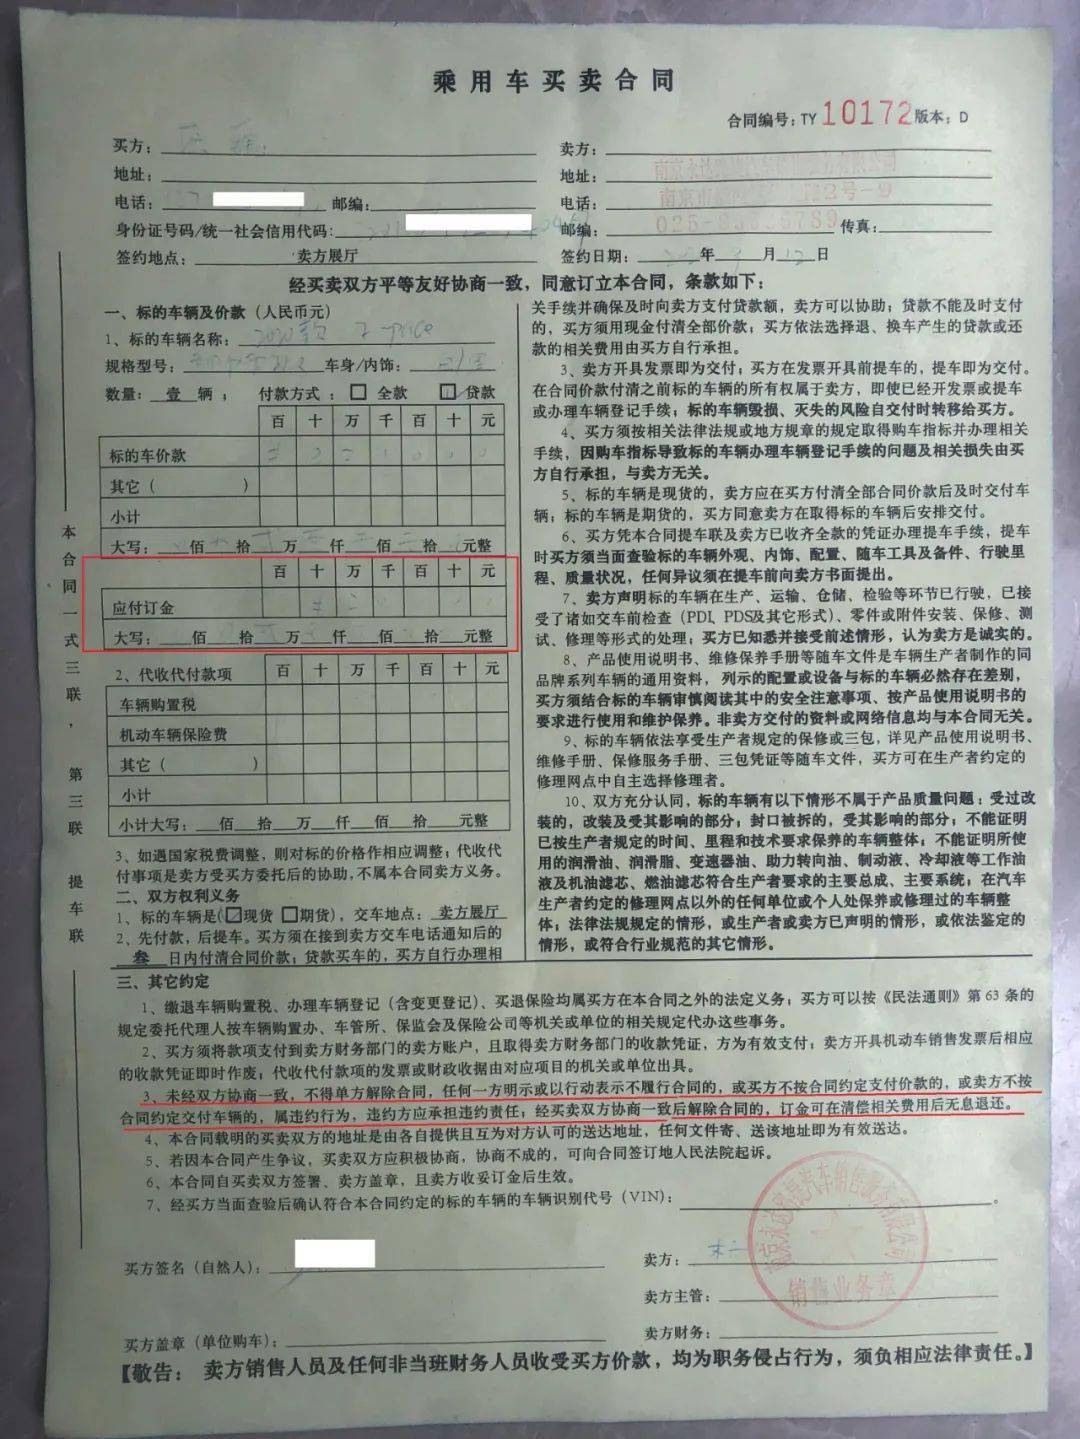 乘用车买卖合同
合同编号：TY 10172 版本：D
买方：
卖方：
地址：
地址：
电话： 邮编：
电话：
身份证号码/统一社会信用代码：
邮编： 传真：
025-83536789
签约地点： 卖方展厅
签约日期： 年 月12日
经买卖双方平等友好协商一致，同意订立本合同，条款如下：
一、标的车辆及价款（人民币元）
1、标的车辆名称：
规格型号： 车身/内饰：
数量：壹 辆； 付款方式：□ 全款 □ 贷款
百 十 万 千 百 十 元
标的车价款
其它（ ）
小计
大写： 佰 拾 万 仟 佰 拾 元整
百 十 万 千 百 十 元
应付订金
大写： 佰 拾 万 仟 佰 拾 元整
2、代收代付款项 百 十 万 千 百 十 元
车辆购置税
机动车辆保险费
其它（ ）
小计
小计大写： 佰 拾 万 仟 佰 拾 元整
3、如遇国家税费调整，则对标的价格作相应调整；代收代
付事项是卖方受买方委托后的协助，不属本合同卖方义务。
二、双方权利义务
1、标的车辆是(☑现货 □期货)，交车地点： 卖方展厅
2、先付款，后提车。买方须在接到卖方交车电话通知后的
叁 日内付清合同价款；贷款买车的，买方自行办理相
关手续并确保及时向卖方支付贷款额，卖方可以协助；贷款不能及时支付
的，买方须用现金付清全部价款；买方依法选择退、换车产生的贷款或还
款的相关费用由买方自行承担。
3、卖方开具发票即为交付；买方在发票开具前提车的，提车即为交付。
在合同价款付清之前标的车辆的所有权属于卖方，即使已经开发票或提车
或办理车辆登记手续；标的车辆毁损、灭失的风险自交付时转移给买方。
4、买方须按相关法律法规或地方规章的规定取得购车指标并办理相关
手续，因购车指标导致标的车辆办理车辆登记手续的问题及相关损失由买
方自行承担，与卖方无关。
5、标的车辆是现货的，卖方应在买方付清全部合同价款后及时交付车
辆；标的车辆是期货的，买方同意卖方在取得标的车辆后安排交付。
6、买方凭本合同提车联及卖方已收齐全款的凭证办理提车手续，提车
时买方须当面查验标的车辆外观、内饰、配置、随车工具及备件、行驶里
程、质量状况，任何异议须在提车前向卖方书面提出。
7、卖方声明标的车辆在生产、运输、仓储、检验等环节已行驶，已接
受了诸如交车前检查（PDI、PDS及其它形式）、零件或附件安装、保修、测
试、修理等形式的处理；买方已知悉并接受前述情形，认为卖方是诚实的。
8、产品使用说明书、维修保养手册等随车文件是车辆生产者制作的同
品牌系列车辆的通用资料，列示的配置或设备与标的车辆必然存在差别，
买方须结合标的车辆审慎阅读其中的安全注意事项、按产品使用说明书的
要求进行使用和维护保养。非卖方交付的资料或网络信息均与本合同无关。
9、标的车辆依法享受生产者规定的保修或三包，详见产品使用说明书、
维修手册、保修服务手册、三包凭证等随车文件，买方可在生产者约定的
修理网点中自主选择修理者。
10、双方充分认同，标的车辆有以下情形不属于产品质量问题：受过改
装的，改装及受其影响的部分；封口被拆的，受其影响的部分；不能证明
已按生产者规定的时间、里程和技术要求保养的车辆整体；不能证明所使
用的润滑油、润滑脂、变速器油、助力转向油、制动液、冷却液等工作油
液及机油滤芯、燃油滤芯符合生产者要求的主要总成、主要系统；在汽车
生产者约定的修理网点以外的任何单位或个人处保养或修理过的车辆整
体；法律法规规定的情形，或生产者或卖方已声明的情形，或依法鉴定的
情形，或符合行业规范的其它情形。
三、其它约定
1、缴退车辆购置税、办理车辆登记（含变更登记）、买退保险均属买方在本合同之外的法定义务；买方可以按《民法通则》第 63 条的
规定委托代理人按车辆购置办、车管所、保监会及保险公司等机关或单位的相关规定代办这些事务。
2、买方须将款项支付到卖方财务部门的卖方账户，且取得卖方财务部门的收款凭证，方为有效支付；卖方开具机动车销售发票后相应
的收款凭证即时作废；代收代付款项的发票或财政收据由对应项目的机关或单位出具。
3、未经双方协商一致，不得单方解除合同，任何一方明示或以行动表示不履行合同的，或买方不按合同约定支付价款的，或卖方不按
合同约定交付车辆的，属违约行为，违约方应承担违约责任；经买卖双方协商一致后解除合同的，订金可在清偿相关费用后无息退还。
4、本合同载明的买卖双方的地址是由各自提供且互为对方认可的送达地址，任何文件寄、送该地址即为有效送达。
5、若因本合同产生争议，买卖双方应积极协商，协商不成的，可向合同签订地人民法院起诉。
6、本合同自买卖双方签署、卖方盖章，且卖方收妥订金后生效。
7、经买方当面查验后确认符合本合同约定的标的车辆的车辆识别代号（VIN）： 。
买方签名（自然人）：
卖方：
卖方主管：
买方盖章（单位购车）：
卖方财务：
销售业务章
【敬告： 卖方销售人员及任何非当班财务人员收受买方价款，均为职务侵占行为，须负相应法律责任。】
本合同一式三联，第三联 提车联